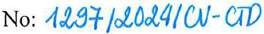 No: 1297/2024/CV-CTD